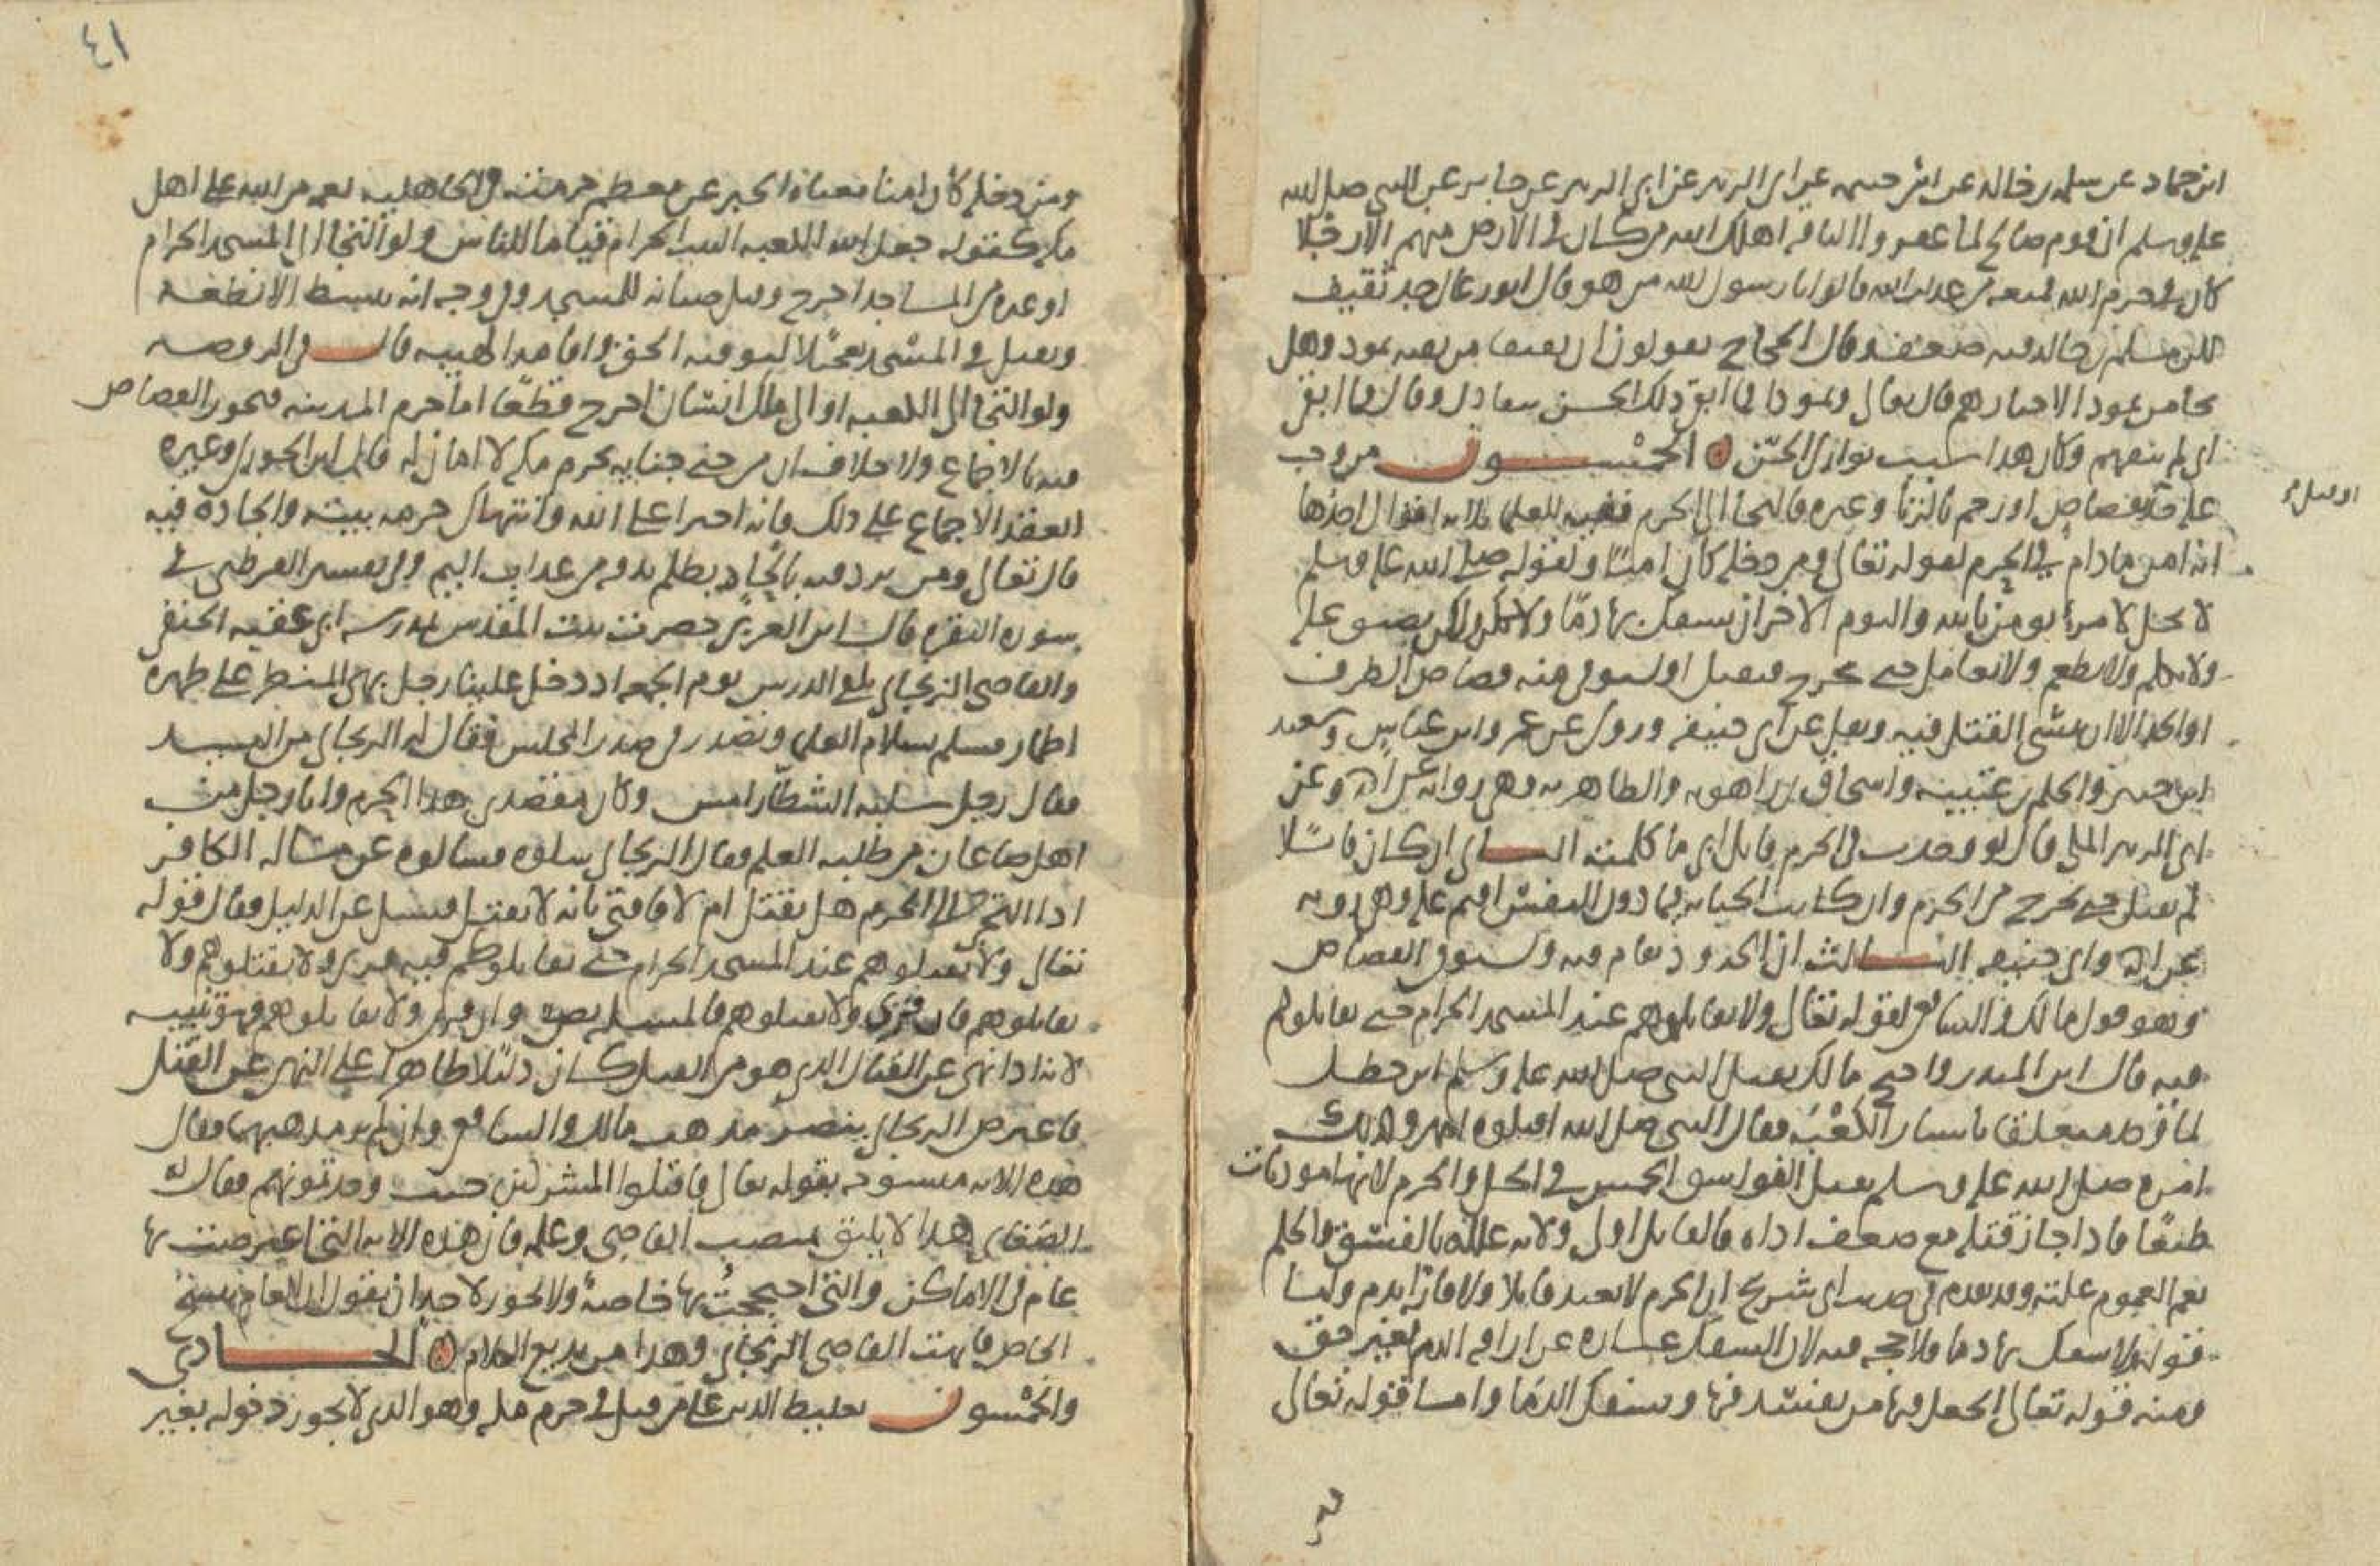 ابن حماد عن مسلم بن خالد عن ابن خيثم عن ابي الزبير عن جابر عن النبي صلى الله
عليه وسلم ان قوم صالح لما عقروا الناقة اهلك الله من كان في الارض منهم الا رجلا
كان في حرم الله فمنعه من عذاب الله قالوا يا رسول الله من هو قال ابو رغال جد ثقيف
لكن مسلم بن خالد فيه ضعف وقال الحجاج يقولون ان ثقيفا من بقية ثمود وهل
نجا من ثمود الا خيارهم قال تعالى وثمودا فما ابقى ذلك الحسن فقال وقال فما ابقى
اي لم يبقهم وكان هذا سبب تواري الحسن الخمسون من وجب
عليه حد قصاص او رجم بالزنا وغيره فالتجا الى الحرم ففيه للعلماء ثلاثة اقوال احدها
او قتل
انه امن ما دام في الحرم لقوله تعالى ومن دخله كان امنا ولقوله صلى الله عليه وسلم
لا يحل لامرئ يومن بالله واليوم الاخر ان يسفك بها دما ولكن يضيق عليه
ولا يكلم ولا يطعم ولا يعامل حتى يخرج فيقتل او يستوفى منه قصاص الطرف
او الحد الا ان ينشئ القتل فيه ونقل عن ابي حنيفة وروي عن عمر وابن عباس وسعيد
ابن جبير والحكم بن عتيبة واسحاق بن راهويه والظاهرية وهي رواية عن احمد وعن
ابي الزبير المكي قال لو وجدت في الحرم قاتل ابي ما كلمته الثاني ان كان قاتلا
لم يقتل حتى يخرج من الحرم وان كانت الجناية فيما دون النفس اقيم عليه وهي رواية
عن احمد وابي حنيفة الثالث ان الحدود تقام فيه ويستوفى القصاص
وهو قول مالك والشافعي لقوله تعالى ولا تقاتلوهم عند المسجد الحرام حتى يقاتلوكم
فيه قال ابن المنذر واحتج مالك بقتل النبي صلى الله عليه وسلم ابن خطل
لما وجده متعلقا باستار الكعبة فقال النبي صلى الله اقتلوه وكذلك
امره صلى الله عليه وسلم بقتل الفواسق الخمس في الحل والحرم لانها موذيات
طبعا فاذا جاز قتله مع ضعف اذاه فالقاتل اولى ولانه علله بالفسق والحكم
يعم العموم علته وقد تقدم في حديث ابي شريح ان الحرم لا يعيذ قاتلا ولا فارا بدم واما
قوله ولا يسفك بها دما فلا حجة فيه لان السفك عبارة عن اراقة الدم بغير حق
ومنه قوله تعالى اتجعل فيها من يفسد فيها ويسفك الدما واما قوله تعالى
٤١
ومن دخله كان امنا معناه الخبر عن معظم حرمته في الجاهلية نعمة من الله على اهل
مكة كقوله جعل الله الكعبة البيت الحرام قياما للناس ولو التجا الى المسجد الحرام
او غيره من المساجد اخرج وقيل صيانة للمسجد وفي وجه انه يبسط الانطعة
ويقتل في المسجد تعجيلا ليوفيه الحق واقامة الهيبة قال في الروضة
ولو التجا الى الكعبة او الى ملك انسان اخرج قطعا اما حرم المدينة فيجوز القصاص
فيه بالاجماع ولا خلاف ان من جنى جناية بحرم مكة لا امان له قاله ابن الجوزي وغيره
انعقد الاجماع على ذلك فانه اجترا على الله وانتهك حرمة بيته والحاده فيه
قال تعالى ومن يرد فيه بالحاد بظلم نذقه من عذاب اليم وفي تفسير القرطبي في
سورة البقرة قال ابن العربي حضرت بيت المقدس بمدرسة ابي عقبة الحنفي
والقاضي الزنجاني يلقي الدرس يوم الجمعة اذ دخل علينا رجل بهي المنظر على ظهره
اطمار فسلم سلام العلماء وتصدر في صدر المجلس فقال له الزنجاني من السيد
فقال رجل سلبه الشطار امس وكان مقصدي هذا الحرم وانا رجل من
اهل صاغان من طلبة العلم فقال الزنجاني سلوه فسالوه عن مسالة الكافر
اذا التجا الى الحرم هل يقتل ام لا فافتى بانه لا يقتل فسئل عن الدليل فقال قوله
تعالى ولا تقتلوهم عند المسجد الحرام حتى يقاتلوكم فيه قرئ ولا تقتلوهم ولا
تقاتلوهم فان قرئ ولا تقتلوهم فالمسالة نص وان قرئ ولا تقاتلوهم فهو تنبيه
لانه اذا نهى عن القتال الذي هو من القتل كان دليلا ظاهرا على النهي عن القتل
فاعترض الزنجاني ينصر مذهب مالك والشافعي وان لم ير مذهبهما فقال
هذه الاية منسوخة بقوله تعالى فاقتلوا المشركين حيث وجدتموهم فقال له
الصغاني هذا لا يليق بمنصب القاضي وعلمه فان هذه الاية التي اعترضت بها
عام في الاماكن والتي احتججت بها خاصة ولا يجوز لاحد ان يقول ان العام ينسخ
الخاص فابهت القاضي الزنجاني وهذا من بديع الكلام الحادي
والخمسون تغليظ الدية على من قتل في حرم مكة وهو الذي لا يجوز دخوله بغير